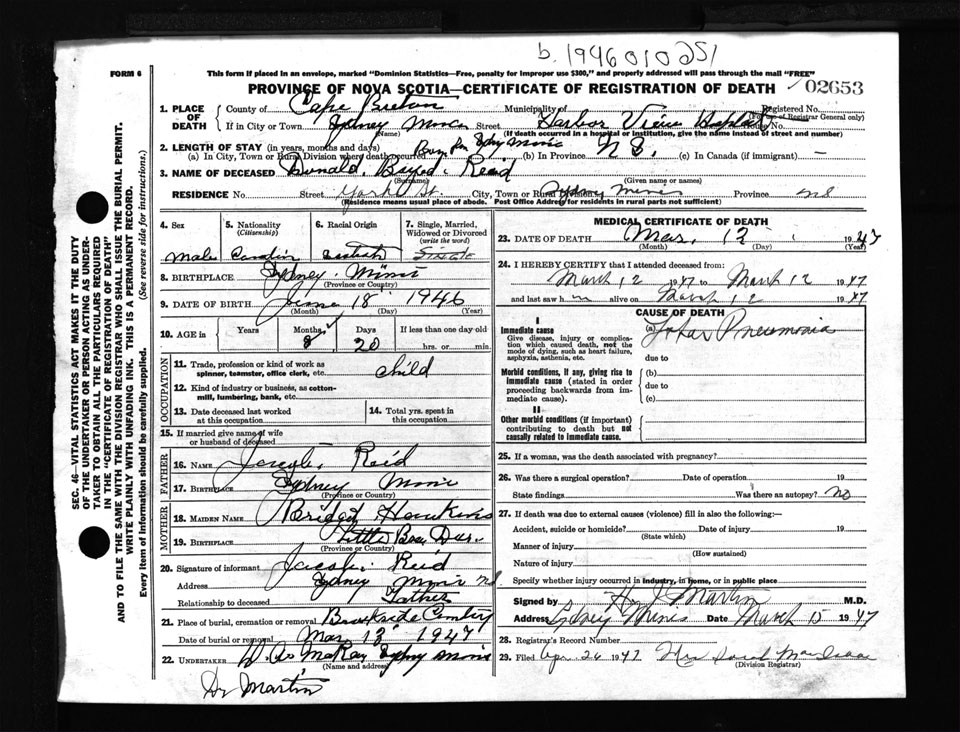 b. 1946 010251
FORM 6
This form if placed in an envelope, marked "Dominion Statistics—Free, penalty for improper use $300," and properly addressed will pass through the mail "FREE"
PROVINCE OF NOVA SCOTIA—CERTIFICATE OF REGISTRATION OF DEATH
02653
SEC. 46—VITAL STATISTICS ACT MAKES IT THE DUTY
OF THE UNDERTAKER OR PERSON ACTING AS UNDER-
TAKER TO OBTAIN ALL THE PARTICULARS REQUIRED
IN THE "CERTIFICATE OF REGISTRATION OF DEATH"
AND TO FILE THE SAME WITH THE DIVISION REGISTRAR WHO SHALL ISSUE THE BURIAL PERMIT.
WRITE PLAINLY WITH UNFADING INK. THIS IS A PERMANENT RECORD.
Every item of Information should be carefully supplied. (See reverse side for instructions.)
1. PLACE OF DEATH County of Cape Breton Municipality of Registered No.
(For use of Registrar General only)
If in City or Town Sydney Mines Street Harbor View House No.
(Name) (If death occurred in a hospital or institution, give the name instead of street and number)
2. LENGTH OF STAY (in years, months and days)
(a) In City, Town or Rural Division where death occurred Sydney Mines (b) In Province N S. (c) In Canada (if immigrant) —
3. NAME OF DECEASED Donald Reid
(Surname) (Given name or names)
RESIDENCE No. Street York St. City, Town or Rural Division Sydney Mines Province NS
(Residence means usual place of abode. Post Office Address for residents in rural parts not sufficient)
4. Sex 5. Nationality (Citizenship) 6. Racial Origin 7. Single, Married, Widowed or Divorced (write the word)
Male Single
8. BIRTHPLACE Sydney Mines
(Province or Country)
9. DATE OF BIRTH June 18 1946
(Month) (Day) (Year)
10. AGE in Years Months Days If less than one day old
8 20 hrs. or min.
OCCUPATION
11. Trade, profession or kind of work as spinner, teamster, office clerk, etc. child
12. Kind of industry or business, as cotton-mill, lumbering, bank, etc.
13. Date deceased last worked at this occupation 14. Total yrs. spent in this occupation
15. If married give name of wife or husband of deceased
FATHER
16. NAME Reid
17. BIRTHPLACE Sydney Mines
(Province or Country)
MOTHER
18. MAIDEN NAME Bridget Hawkins
19. BIRTHPLACE Little
(Province or Country)
20. Signature of informant Reid
Address Sydney Mines NS.
Relationship to deceased Father
21. Place of burial, cremation or removal Brookside
Date of burial or removal Mar 13 1947
22. UNDERTAKER McKay Sydney Mines
(Name and address)
Dr Martin
MEDICAL CERTIFICATE OF DEATH
23. DATE OF DEATH Mar. 12 1947
(Month) (Day) (Year)
24. I HEREBY CERTIFY that I attended deceased from:
March 12 1947 to March 12 1947
and last saw him alive on March 12 1947
CAUSE OF DEATH
I
Immediate cause (a) Lobar Pneumonia
Give disease, injury or complica-
tion which caused death, not the
mode of dying, such as heart failure,
asphyxia, asthenia, etc. due to
Morbid conditions, if any, giving rise to (b)
immediate cause (stated in order due to
proceeding backwards from im-
mediate cause). (c)
II
Other morbid conditions (if important)
contributing to death but not
causally related to immediate cause.
25. If a woman, was the death associated with pregnancy?
26. Was there a surgical operation? Date of operation 19
State findings Was there an autopsy? no
27. If death was due to external causes (violence) fill in also the following:—
Accident, suicide or homicide? Date of injury 19
(State which)
Manner of injury
(How sustained)
Nature of injury
Specify whether injury occurred in industry, in home, or in public place
Signed by H J Martin M.D.
Address Sydney Mines Date March 15 1947
28. Registrar's Record Number
29. Filed Apr 26 1947 Mrs Sarah MacIsaac
(Division Registrar)